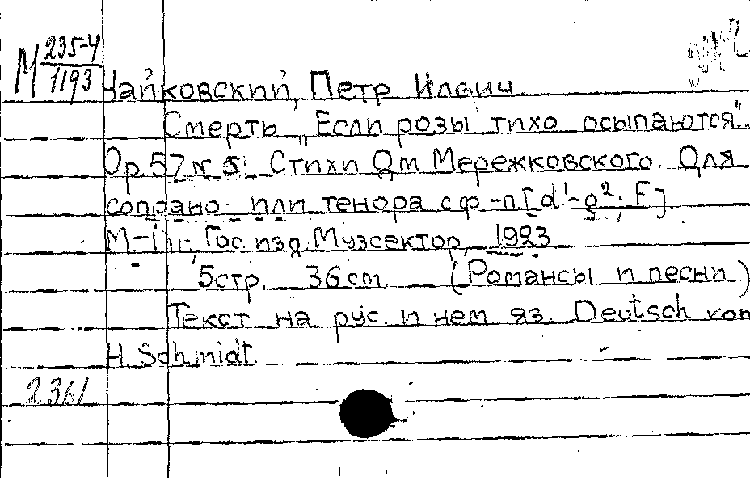 М 235-4
1193
Чайковский, Петр Ильич
Смерть „Если розы тихо осыпаются“.
Op. 57 № 5. Стихи Дм. Мережковского. Для
сопрано или тенора с ф.-п. [d¹-g²; F]
М-[ ]. Гос. изд. Музсектор, 1923
5 стр. 36 см (Романсы и песни)
Текст на рус. и нем. яз. Deutsch von
H. Schmidt
2361